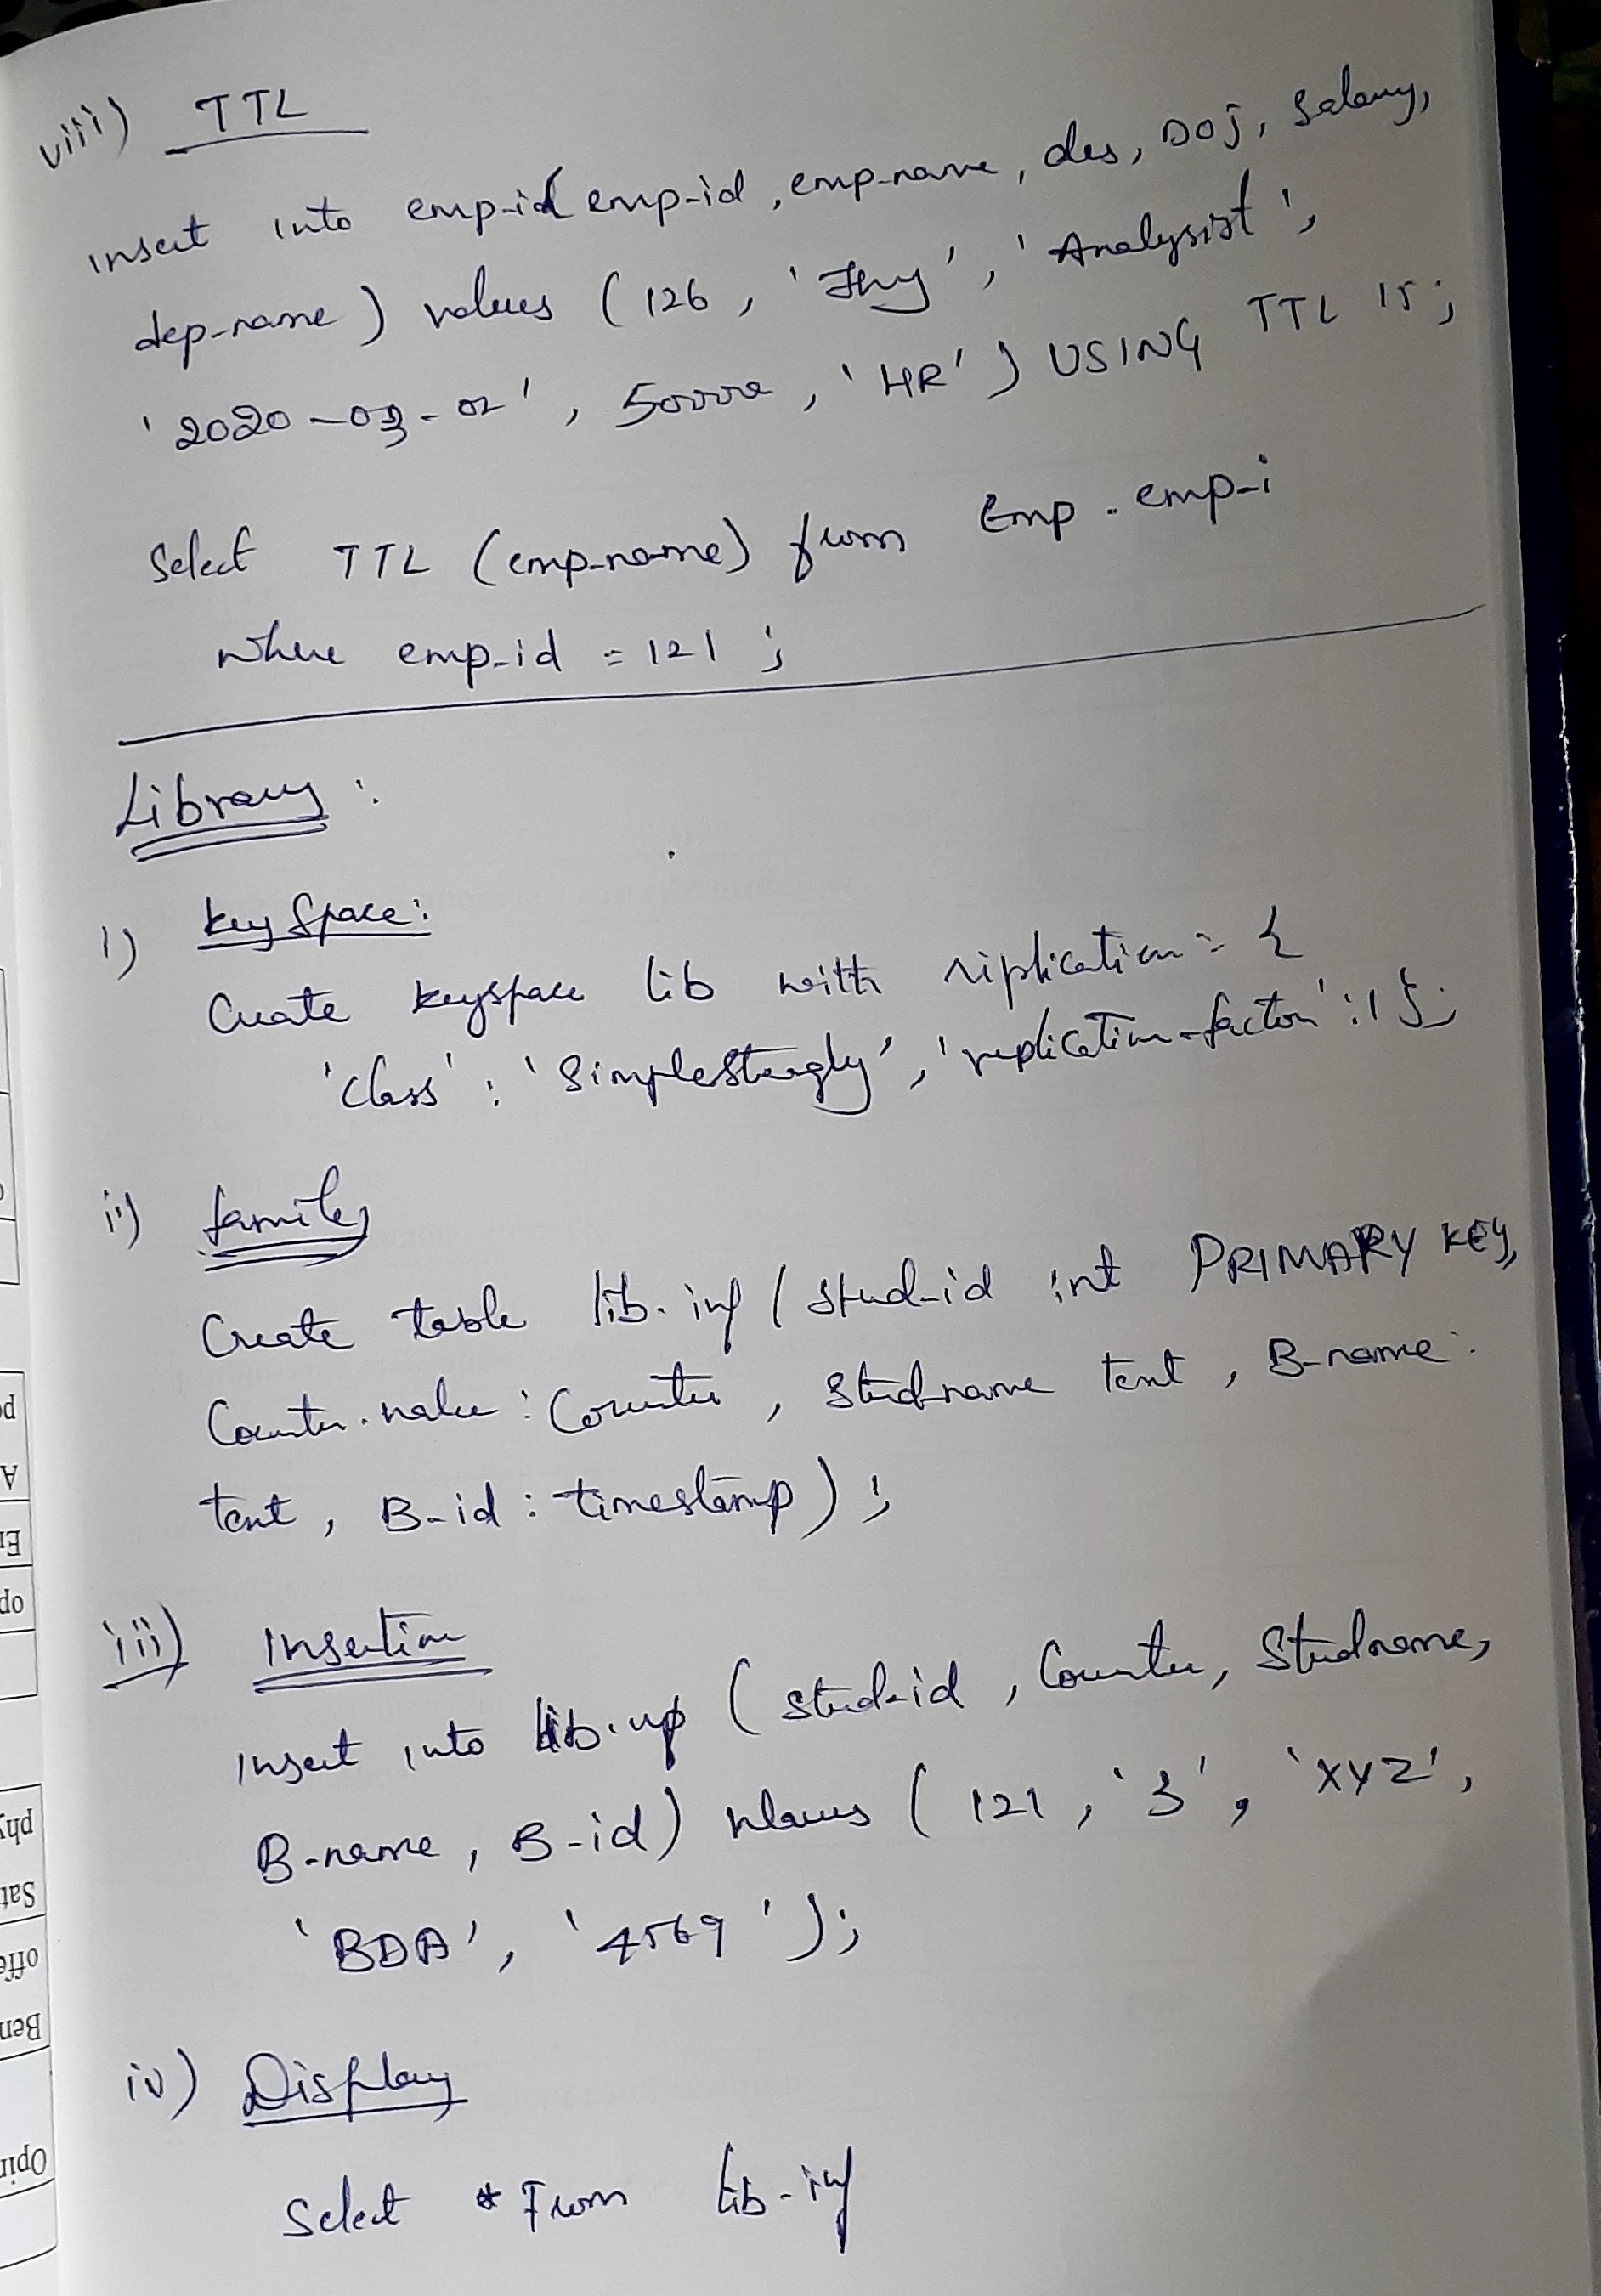 viii) TTL
insert into emp-id( emp-id, emp-name, des, DOJ, Salary,
dep-name) values (126, ' ', 'Analysist',
'2020-03-02', 50000, 'HR') USING TTL 15;
Select TTL (emp-name) from Emp.emp-i
where emp-id = 121;
Library:
i) key Space:
Create keyspace lib with riplication = {
'class' : 'SimpleStargly', 'replication-factor' : 1};
ii) family
Create table lib.inf ( Stud-id int PRIMARY KEY,
Counter.value : Counter, Studname text, B-name:
text, B-id : timestamp);
iii) Insertion
Insert into lib. ( stud-id, Counter, Studname,
B-name, B-id) values ( 121, '3', 'XYZ',
'BDA', '4569');
iv) Display
Select * From Lib-inf
pe
A
En
op
phy
Sat
offe
Ben
Opin